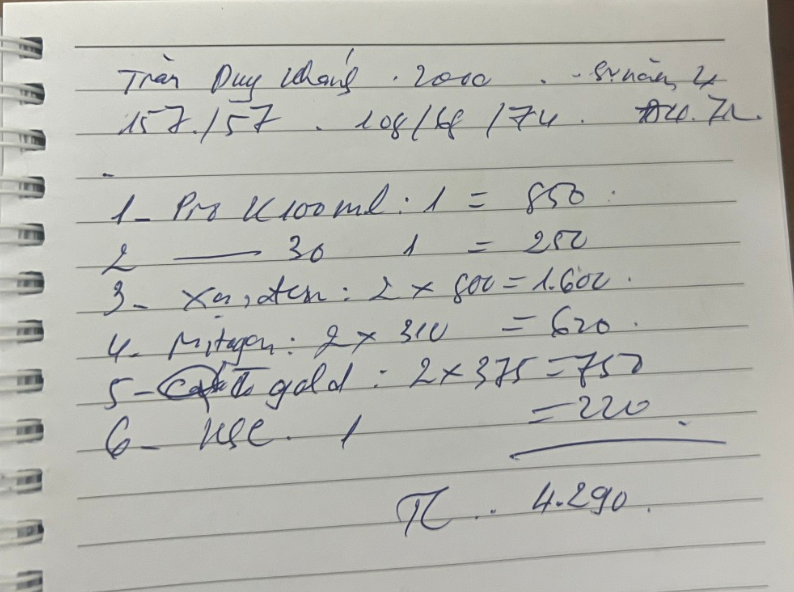 Trần Duy Khánh . 2000 .
157/57 . 108/68 /74 .
1- Pro K 100ml : 1 = 850 .
2 —— 30 1 = 250
3- : 2 x 800 = 1.600 .
4- Mitagen : 2 x 310 = 620 .
5- gold : 2 x 375 = 750
6- KSC . 1 = 220 .
TC .. 4.290 .